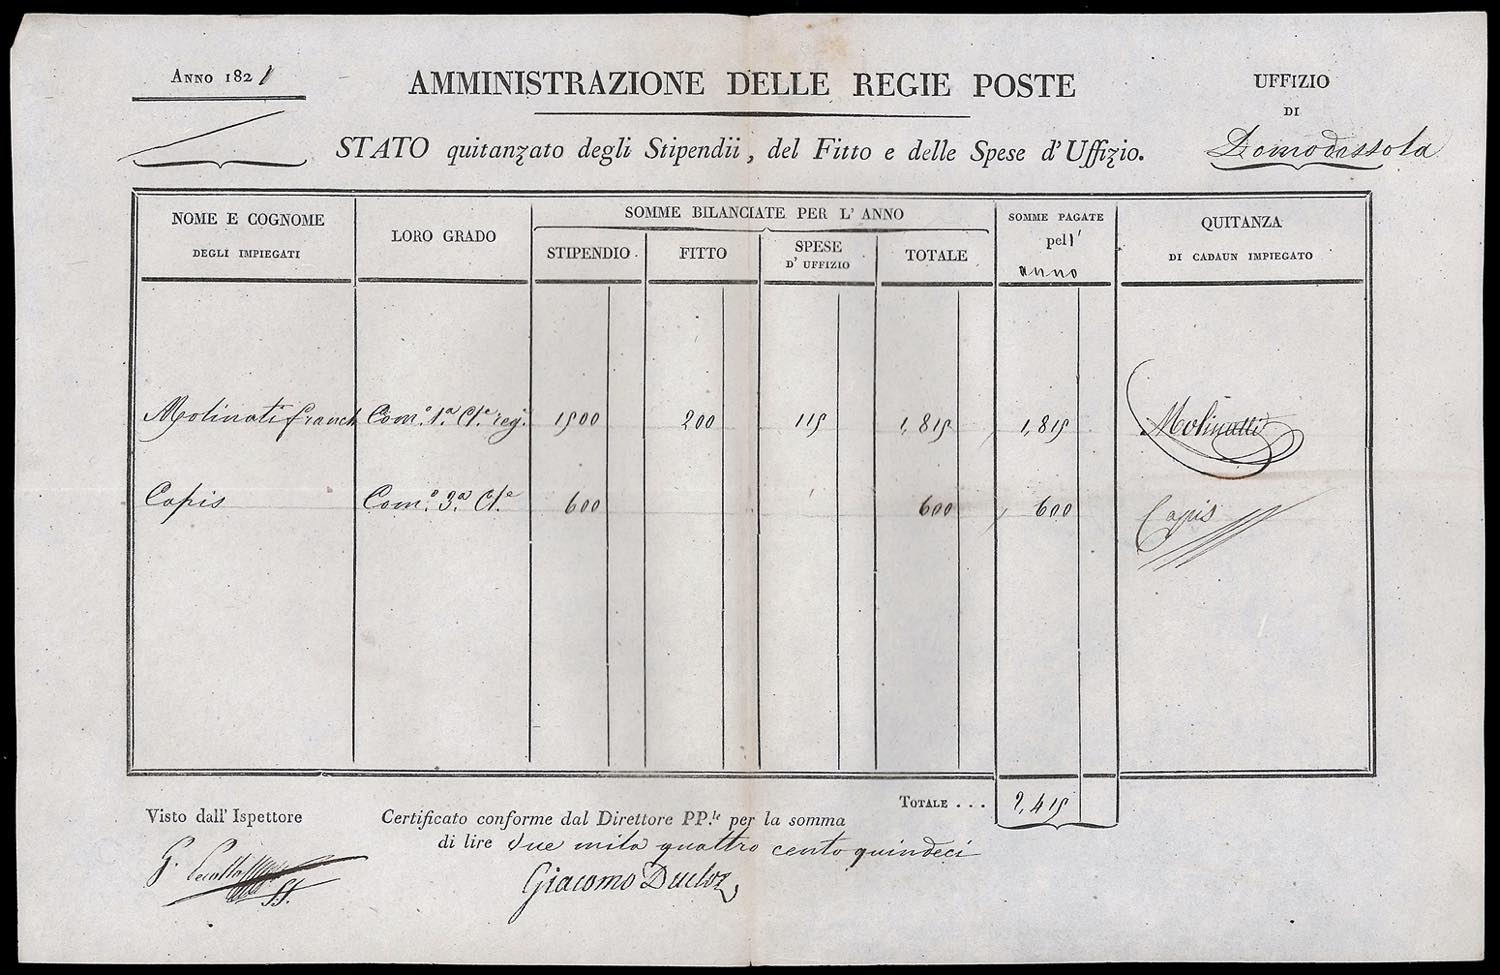 Anno 1821
AMMINISTRAZIONE DELLE REGIE POSTE
UFFIZIO
DI
Domodossola
STATO quitanzato degli Stipendii, del Fitto e delle Spese d'Uffizio.
NOME E COGNOME
DEGLI IMPIEGATI
LORO GRADO
SOMME BILANCIATE PER L'ANNO
STIPENDIO
FITTO
SPESE
D'UFFIZIO
TOTALE
SOMME PAGATE
pell'
anno
QUITANZA
DI CADAUN IMPIEGATO
Molinati Com.º 1.ª Cl.e reg. 1500 200 115 1,815 1,815 Molinatti
Capis Com.º 3.ª Cl.e 600 600 600 Capis
Totale . . . 2,415
Visto dall' Ispettore
Certificato conforme dal Direttore PP.le per la somma
di lire due mila quattro cento quindeci
G.
Giacomo Ducloz